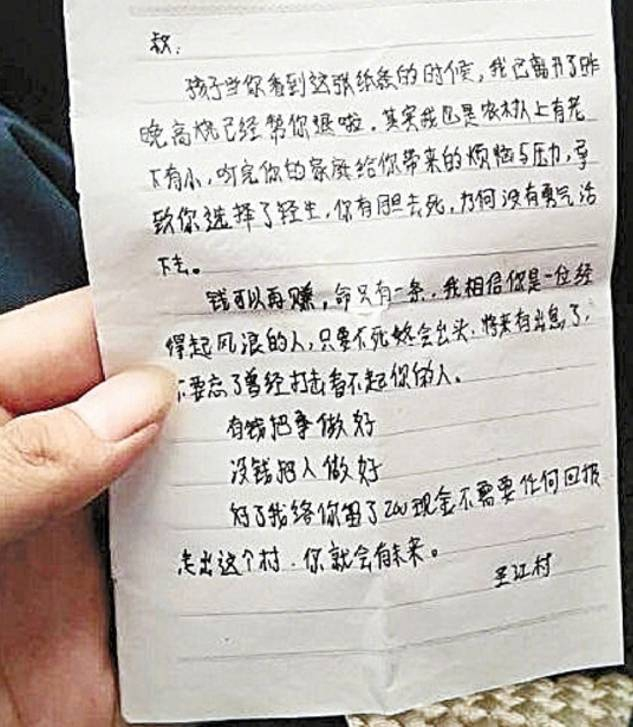 叔:
孩子当你看到这张纸条的时候,我已离开了昨
晚高烧已经帮你退啦.其实我也是农村人上有老
下有小,听完你的家庭给你带来的烦恼与压力,导
致你选择了轻生,你有胆去死,为何没有勇气活
下去。
钱可以再赚,命只有一条.我相信你是一位经
得起风浪的人,只要不死终会出头.将来有出息了,
不要忘了曾经打击看不起你的人。
有钱把事做好
没钱把人做好
对了我给你留了200现金不需要任何回报
走出这个村.你就会有未来。
王江村